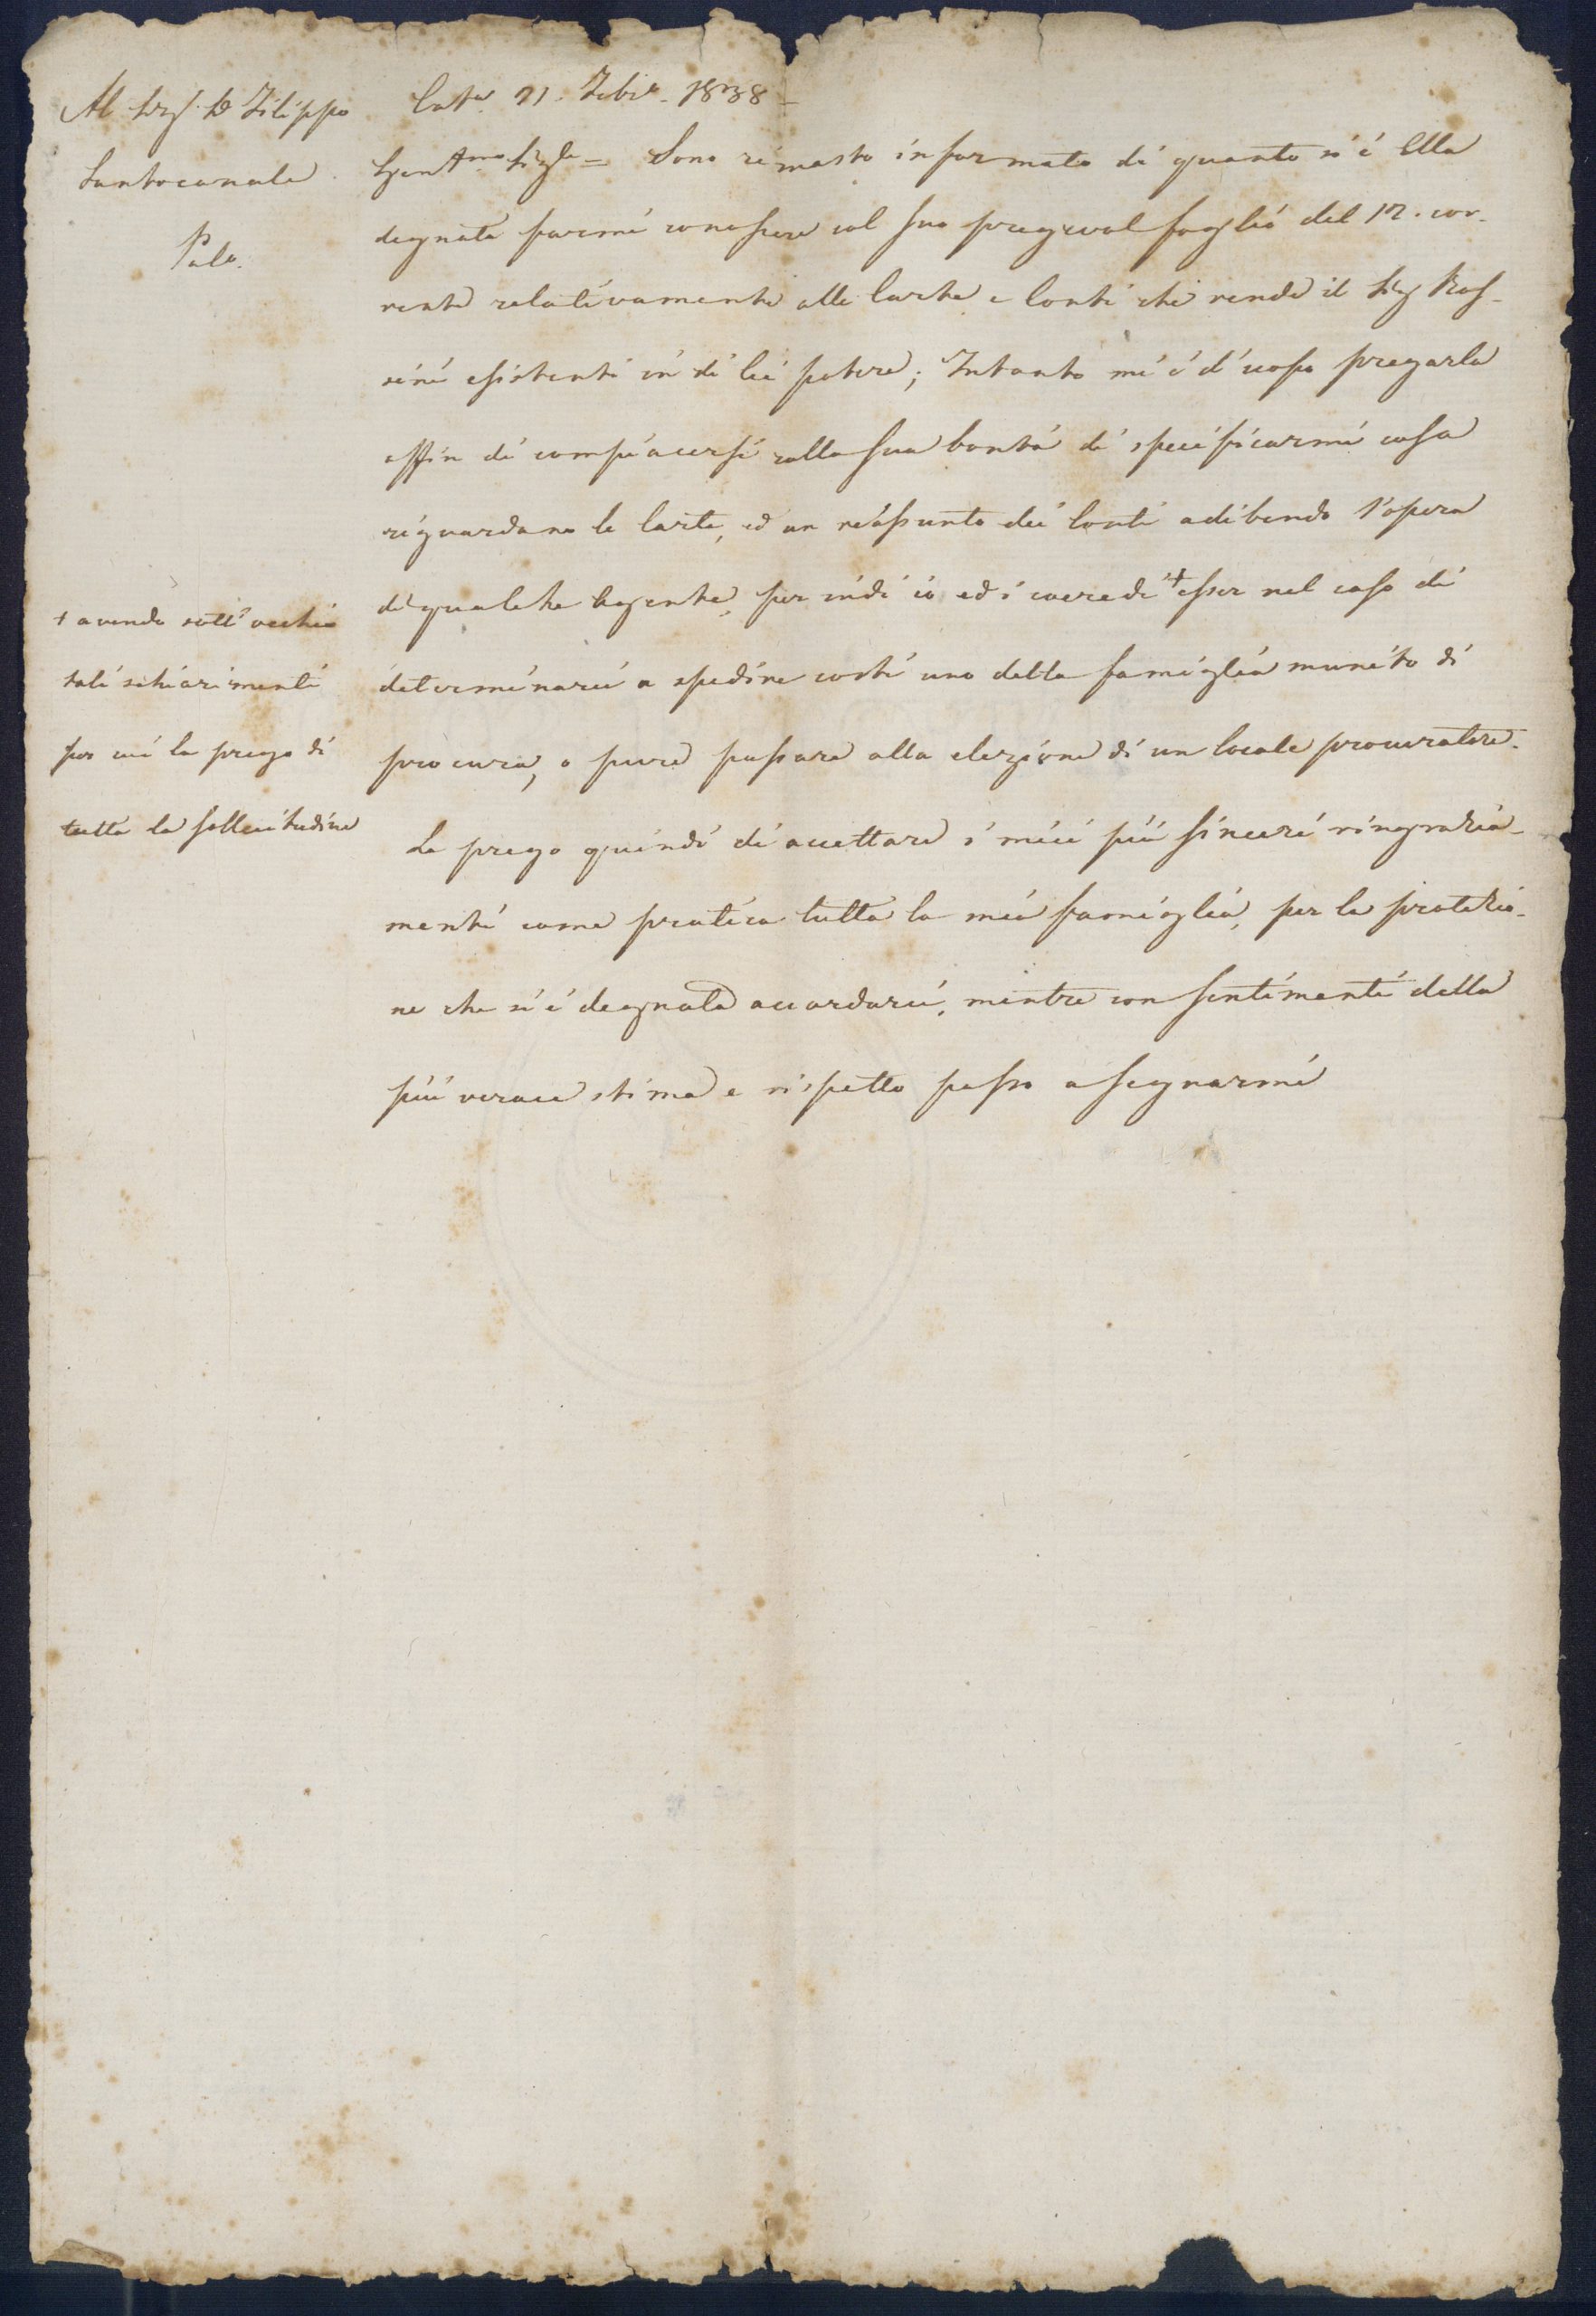 Al Sig.r D. Filippo
Santocanale
Palo.
Cat.a 21. Febbr. 1838 =
Gent.mo Sig.re = Sono rimasto informato di quanto si è Ella
degnata farmi conoscere col suo pregevol foglio del 12. cor-
rente relativamente alle Carte, e Conti che rende il Sig.r Ros-
sini esistenti in di lei potere; Intanto mi è d'uopo pregarla
affin di compiacersi colla sua bontà di specificarmi cosa
riguardano le Carte, ed un riassunto dei Conti adibendo l'opera
di qualche Agente, per indi io ed i coeredi + esser nel caso di
determinarci a spedire costì uno della famiglia munito di
procura, o pure passare alla elezione di un locale procuratore.
+ avendo sott'occhio
tali schiarimenti
per cui la prego di
tutta la sollecitudine
La prego quindi di accettare i miei più sinceri ringrazia-
menti come pratica tutta la mia famiglia, per la protezio-
ne che si è degnata accordarci, mentre con sentimenti della
più verace stima e rispetto passo a segnarmi